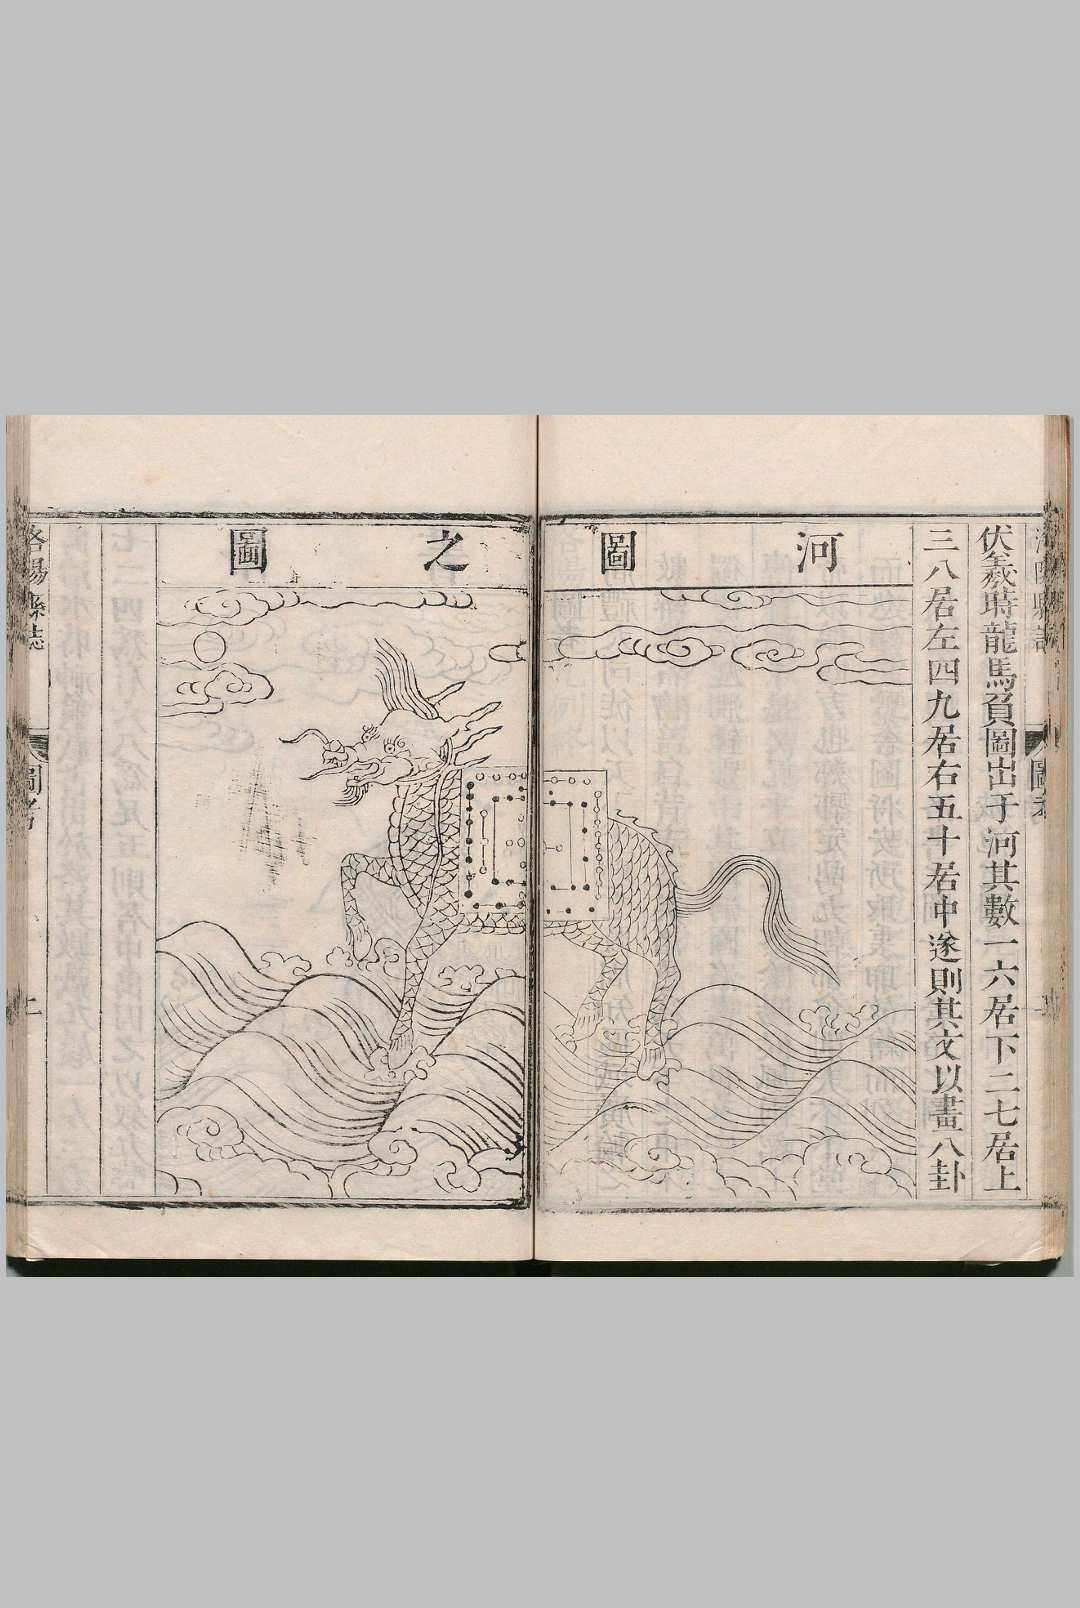 洛陽縣志
圖考
伏羲時龍馬負圖出于河其數一六居下二七居上
三八居左四九居右五十居中遂則其文以畫八卦
河圖之圖
洛陽縣志
圖考
上